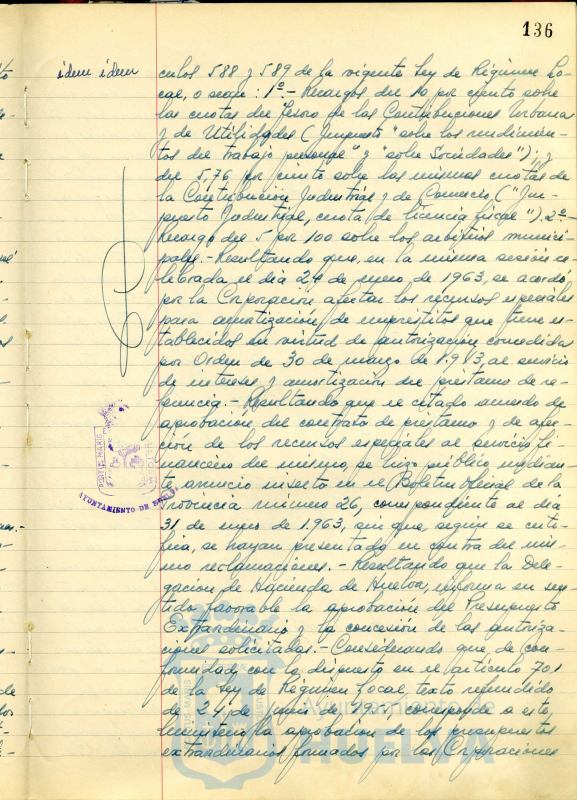 136
idem idem
culos 588 y 589 de la vigente Ley de Régimen Lo-
cal, o sean: 1º.- Recargos del 10 por ciento sobre
las cuotas del Tesoro de las Contribuciones Urbana
y de Utilidades (Impuesto "sobre los rendimien-
tos del trabajo personal" y "sobre Sociedades"); y
del 5,76 por ciento sobre las mismas cuotas de
la Contribución Industrial y de Comercio ("Im-
puesto Industrial, cuota de licencia fiscal"). 2º.-
Recargo del 5 por 100 sobre los arbitrios munici-
pales.- Resultando que, en la misma sesión ce-
lebrada el día 24 de enero de 1963, se acordó
por la Corporación afectar los recursos especiales
para amortización de empréstitos que tiene es-
tablecidos en virtud de autorización concedida
por Orden de 30 de marzo de, al servicio
de intereses y amortización del préstamo de re-
ferencia.- Resultando que el citado acuerdo de
aprobación del contrato de préstamo y de afec-
ción de los recursos especiales al servicio fi-
nanciero del mismo, se hizo público median-
te anuncio inserto en el Boletín Oficial de la
Provincia número 26, correspondiente al día
31 de enero de 1.963, sin que, según se certi-
fica, se hayan presentado en contra del mis-
mo reclamaciones.- Resultando que la Dele-
gación de Hacienda de Huelva, informa en sen-
tido favorable la aprobación del Presupuesto
Extraordinario y la concesión de las autoriza-
ciones solicitadas.- Considerando que, de con-
formidad con lo dispuesto en el artículo 701
de la Ley de Régimen Local, texto refundido
de 24 de junio de, corresponde a este
Ministerio la aprobación de los presupuestos
extraordinarios formados por las Corporaciones
PORTUS MARIS
AYUNTAMIENTO DE HUELVA
Ayuntamiento de
HUELVA